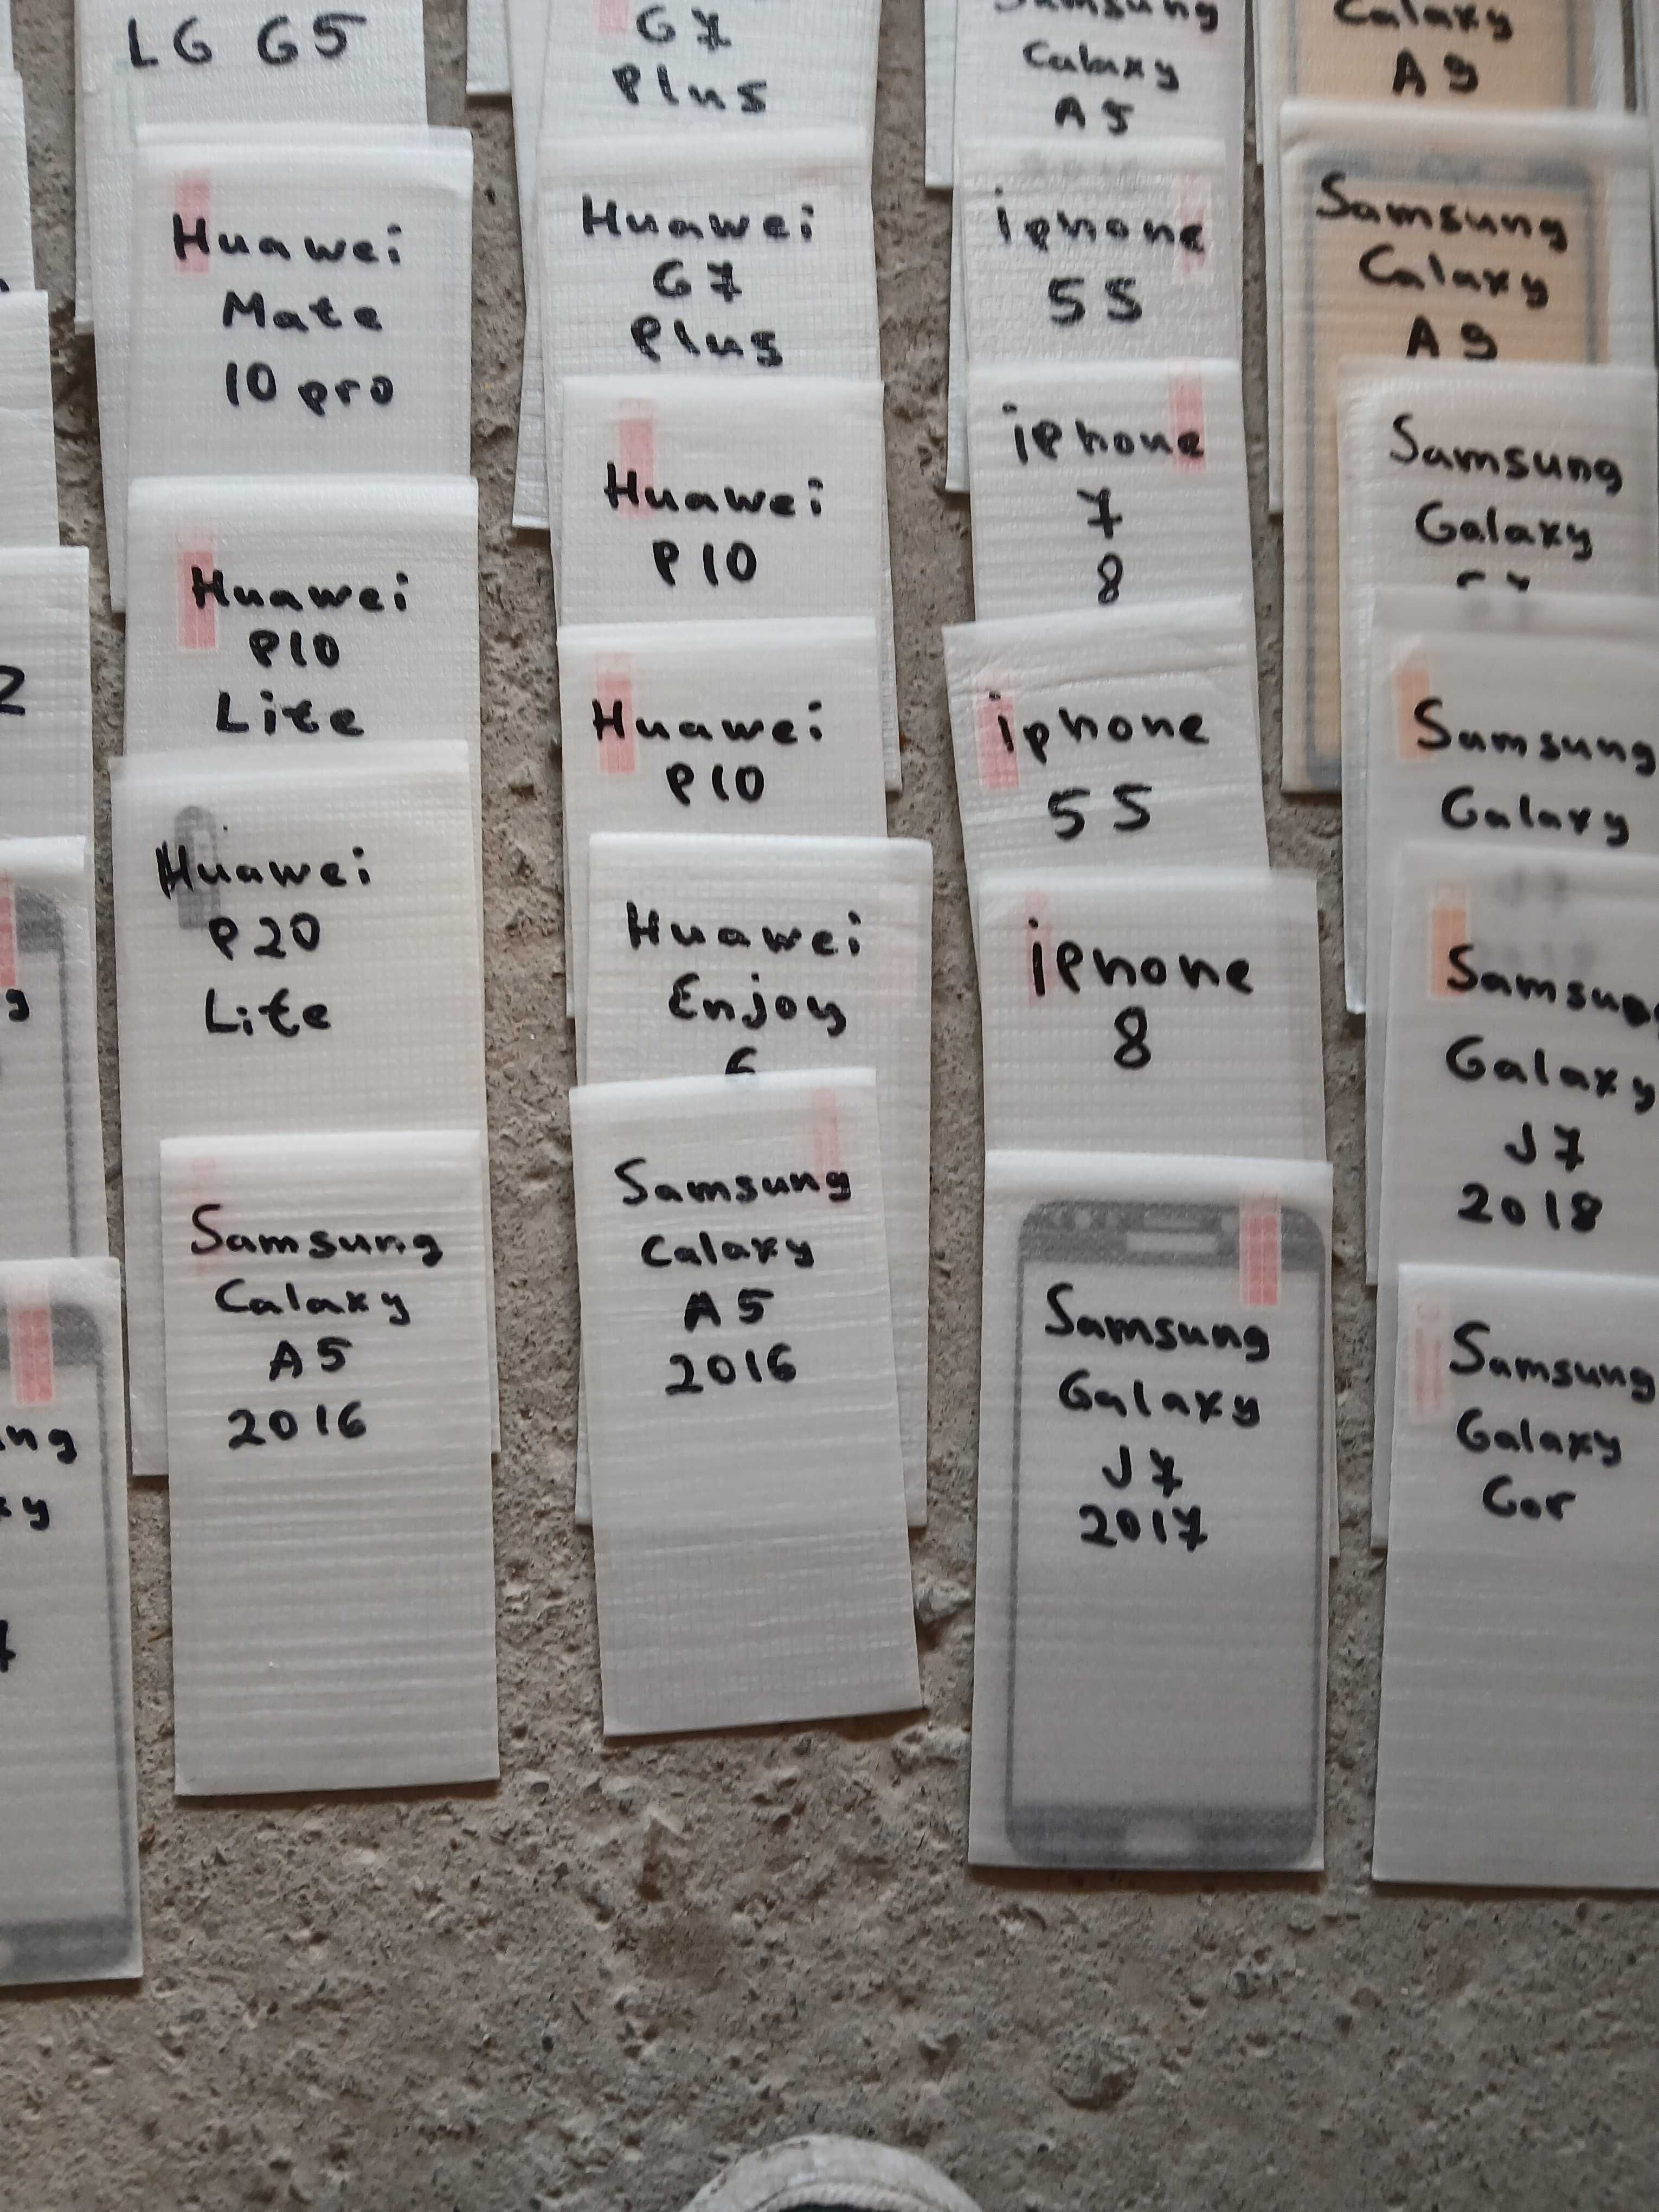 LG G5
Huawei
Mate
10 pro
Huawei
P10
Lite
Huawei
P20
Lite
Samsung
Calaxy
A5
2016
G7
Plus
Huawei
G7
Plus
Huawei
P10
Huawei
P10
Huawei
Enjoy
6
Samsung
Calaxy
A5
2016
Samsung
Calaxy
A5
iphone
5S
iphone
7
8
iphone
5S
iphone
8
Samsung
Galaxy
J7
2017
Calaxy
A9
Samsung
Calaxy
A9
Samsung
Galaxy
Samsung
Galaxy
Samsung
Galaxy
J7
2018
Samsung
Galaxy
Gor